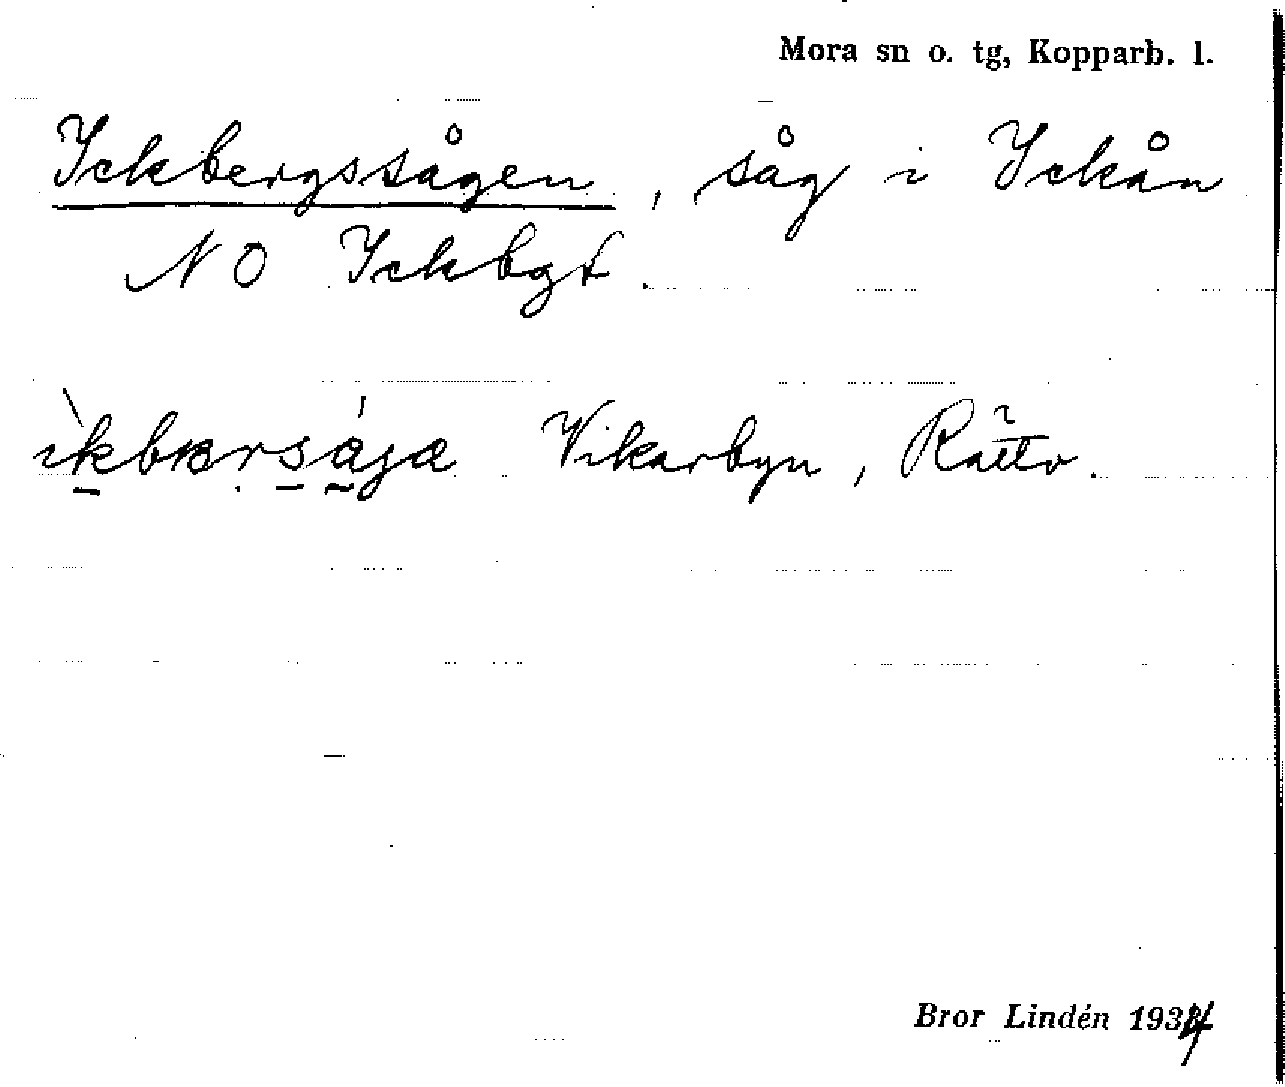 Mora sn o. tg, Kopparb. l.
Ickbergssågen, såg i Ickån
NO Ickbgt.
ìkbærsája Vikarbyn, Rättv.
Bror Lindén 1934